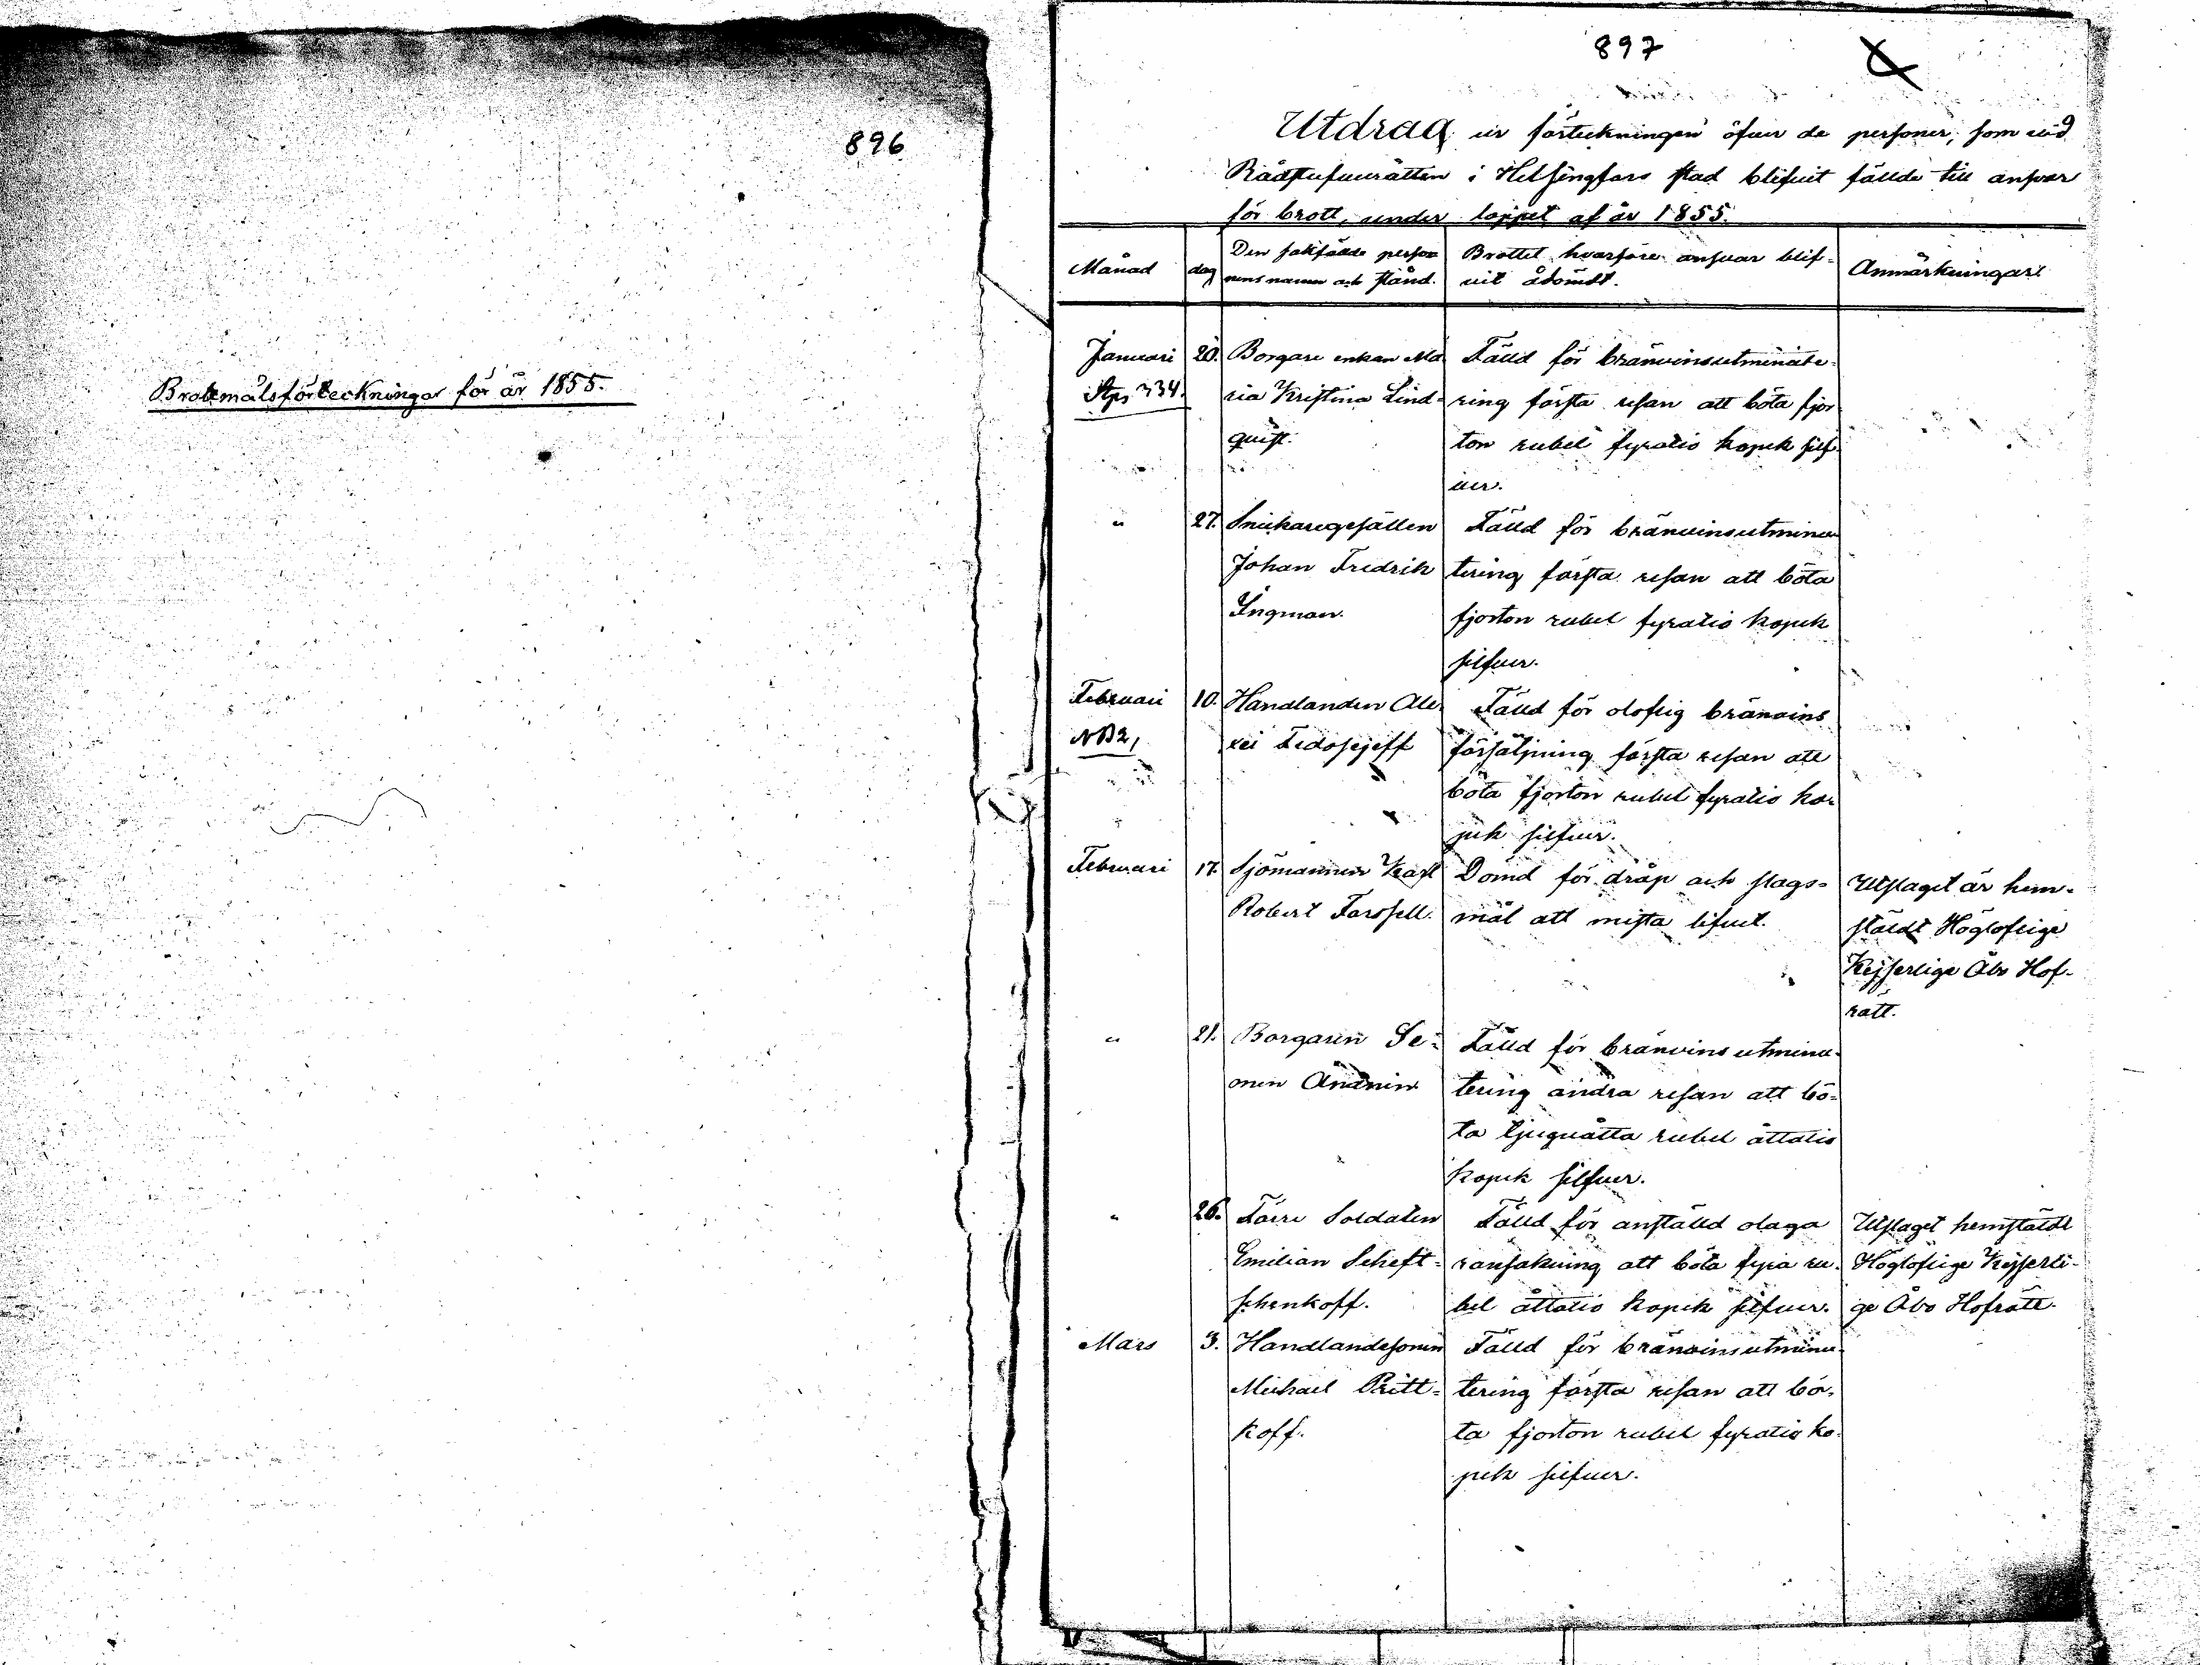 896
Brottmålsförteckningar för år 1855.
897
Utdrag ur förteckningen öfver de personer, som vid
Rådstufvurätten i Helsingfors stad blifvit fällde till ansvar
för brott, under loppet af år 1855.
Månad
dag
Den sakfällde perso
nens namn och stånd.
Brottet hvarföre ansvar blif-
vit ådömdt.
Anmärkningar
Januari
334.
20.
Borgare enkan Ma
ria Kristina Lind-
qvist.
Fälld för bränvinsutminute-
ring första resan att böta fjor
ton rubel fyratio kopek silf-
ver.
"
27.
Snickaregesällen
Johan Fredrik
Ingman.
Fälld för bränvinsutminu
tering första resan att böta
fjorton rubel fyratio kopek
silfver.
Februari
NB 2,
10.
Handlanden Ale-
xei Fedosejeff
Fälld för oloflig bränvins
försäljning första resan att
böta fjorton rubel fyratio ko-
pek silfver.
Februari
17.
Sjömannen Karl
Robert Forssell.
Dömd för dråp och slags-
mål att mista lifvet.
Utslaget är hem-
stäldt Högloflige
Kejserlige Åbo Hof-
rätt.
"
21.
Borgaren Se-
men Ananin
Fälld för bränvinsutminu-
tering andra resan att bö-
ta tjuguåtta rubel åttatio
kopek silfver.
"
26.
Förre Soldaten
Emilian Scheft-
schenkoff.
Fälld för anställd olaga
ransakning att böta fyra ru-
bel åttatio kopek silfver.
Utslaget hemstäldt
Högloflige Kejserli-
ge Åbo Hofrätt.
Mars
3.
Handlandesonen
Michael Pritt-
koff.
Fälld för bränvinsutminu-
tering första resan att bö-
ta fjorton rubel fyratio ko-
pek silfver.